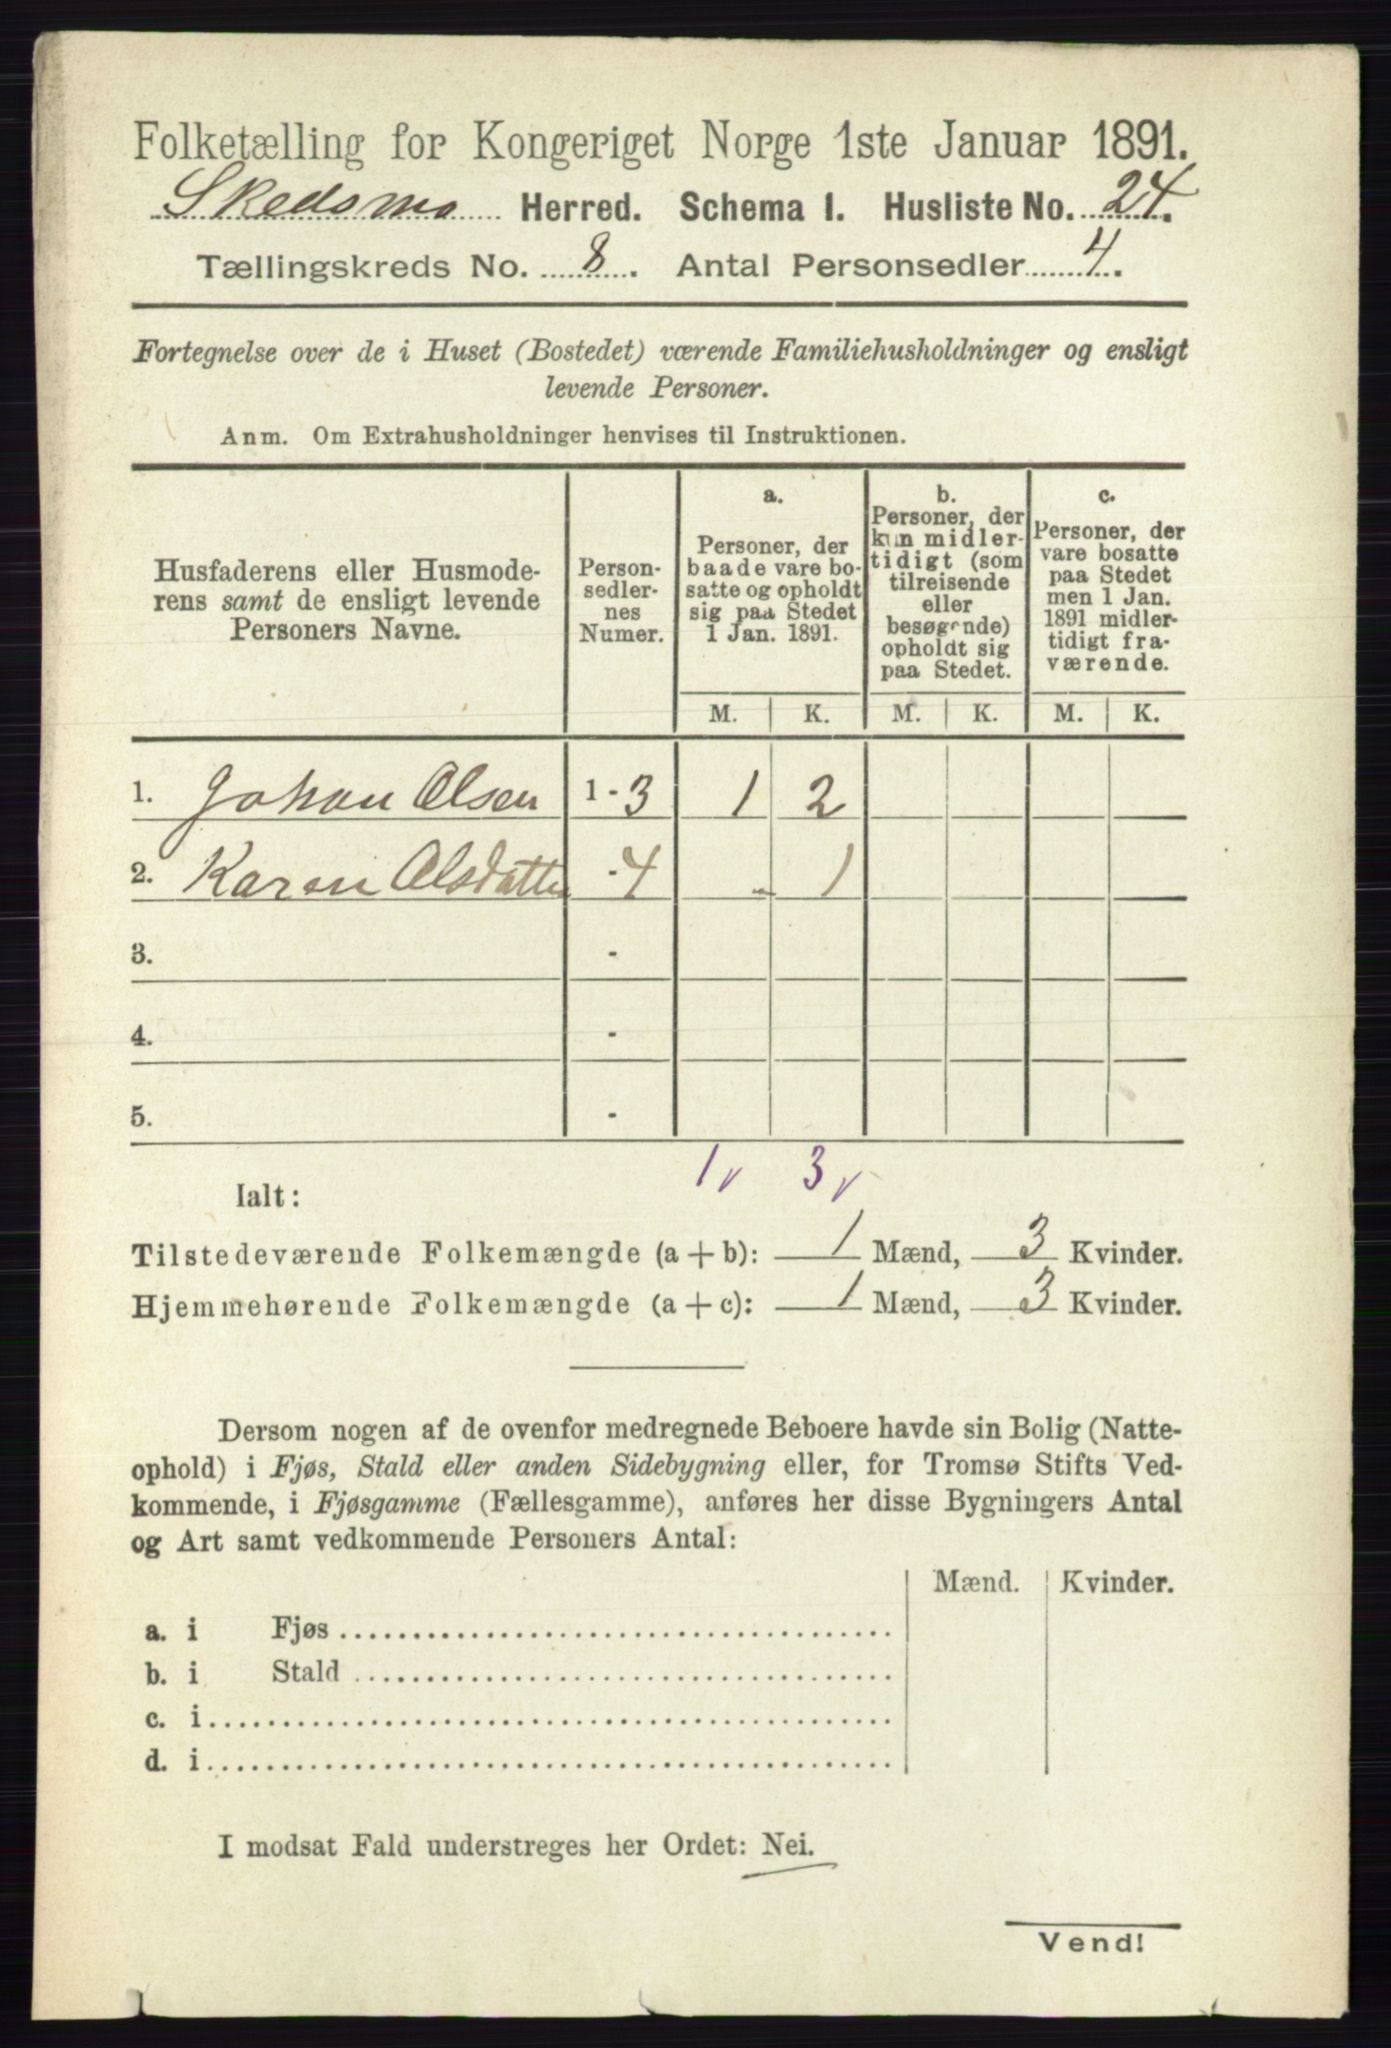 Folketælling for Kongeriget Norge 1ste Januar 1891.
Skedsmo Herred. Schema I. Husliste No. 24.
Tællingskreds No. 8. Antal Personsedler 4.
Fortegnelse over de i Huset (Bostedet) værende Familiehusholdninger og ensligt
levende Personer.
Anm. Om Extrahusholdninger henvises til Instruktionen.
Husfaderens eller Husmode-
rens samt de ensligt levende
Personers Navne.
Person-
sedler-
nes
Numer.
a.
Personer, der
baade vare bo-
satte og opholdt
sig paa Stedet
1 Jan. 1891.
b.
Personer, der
kun midler-
tidigt (som
tilreisende
eller
besøgende)
opholdt sig
paa Stedet.
c.
Personer, der
vare bosatte
paa Stedet
men 1 Jan.
1891 midler-
tidigt fra-
værende.
M. K. M. K. M. K.
1. Johan Olsen 1 - 3 1 2
2. Karen Olsdatter - 4 - 1
3. -
4. -
5. -
1 v 3 v
Ialt:
Tilstedeværende Folkemængde (a + b): 1 Mænd, 3 Kvinder.
Hjemmehørende Folkemængde (a + c): 1 Mænd, 3 Kvinder.
Dersom nogen af de ovenfor medregnede Beboere havde sin Bolig (Natte-
ophold) i Fjøs, Stald eller anden Sidebygning eller, for Tromsø Stifts Ved-
kommende, i Fjøsgamme (Fællesgamme), anføres her disse Bygningers Antal
og Art samt vedkommende Personers Antal:
Mænd. Kvinder.
a. i Fjøs
b. i Stald
c. i
d. i
I modsat Fald understreges her Ordet: Nei.
Vend!